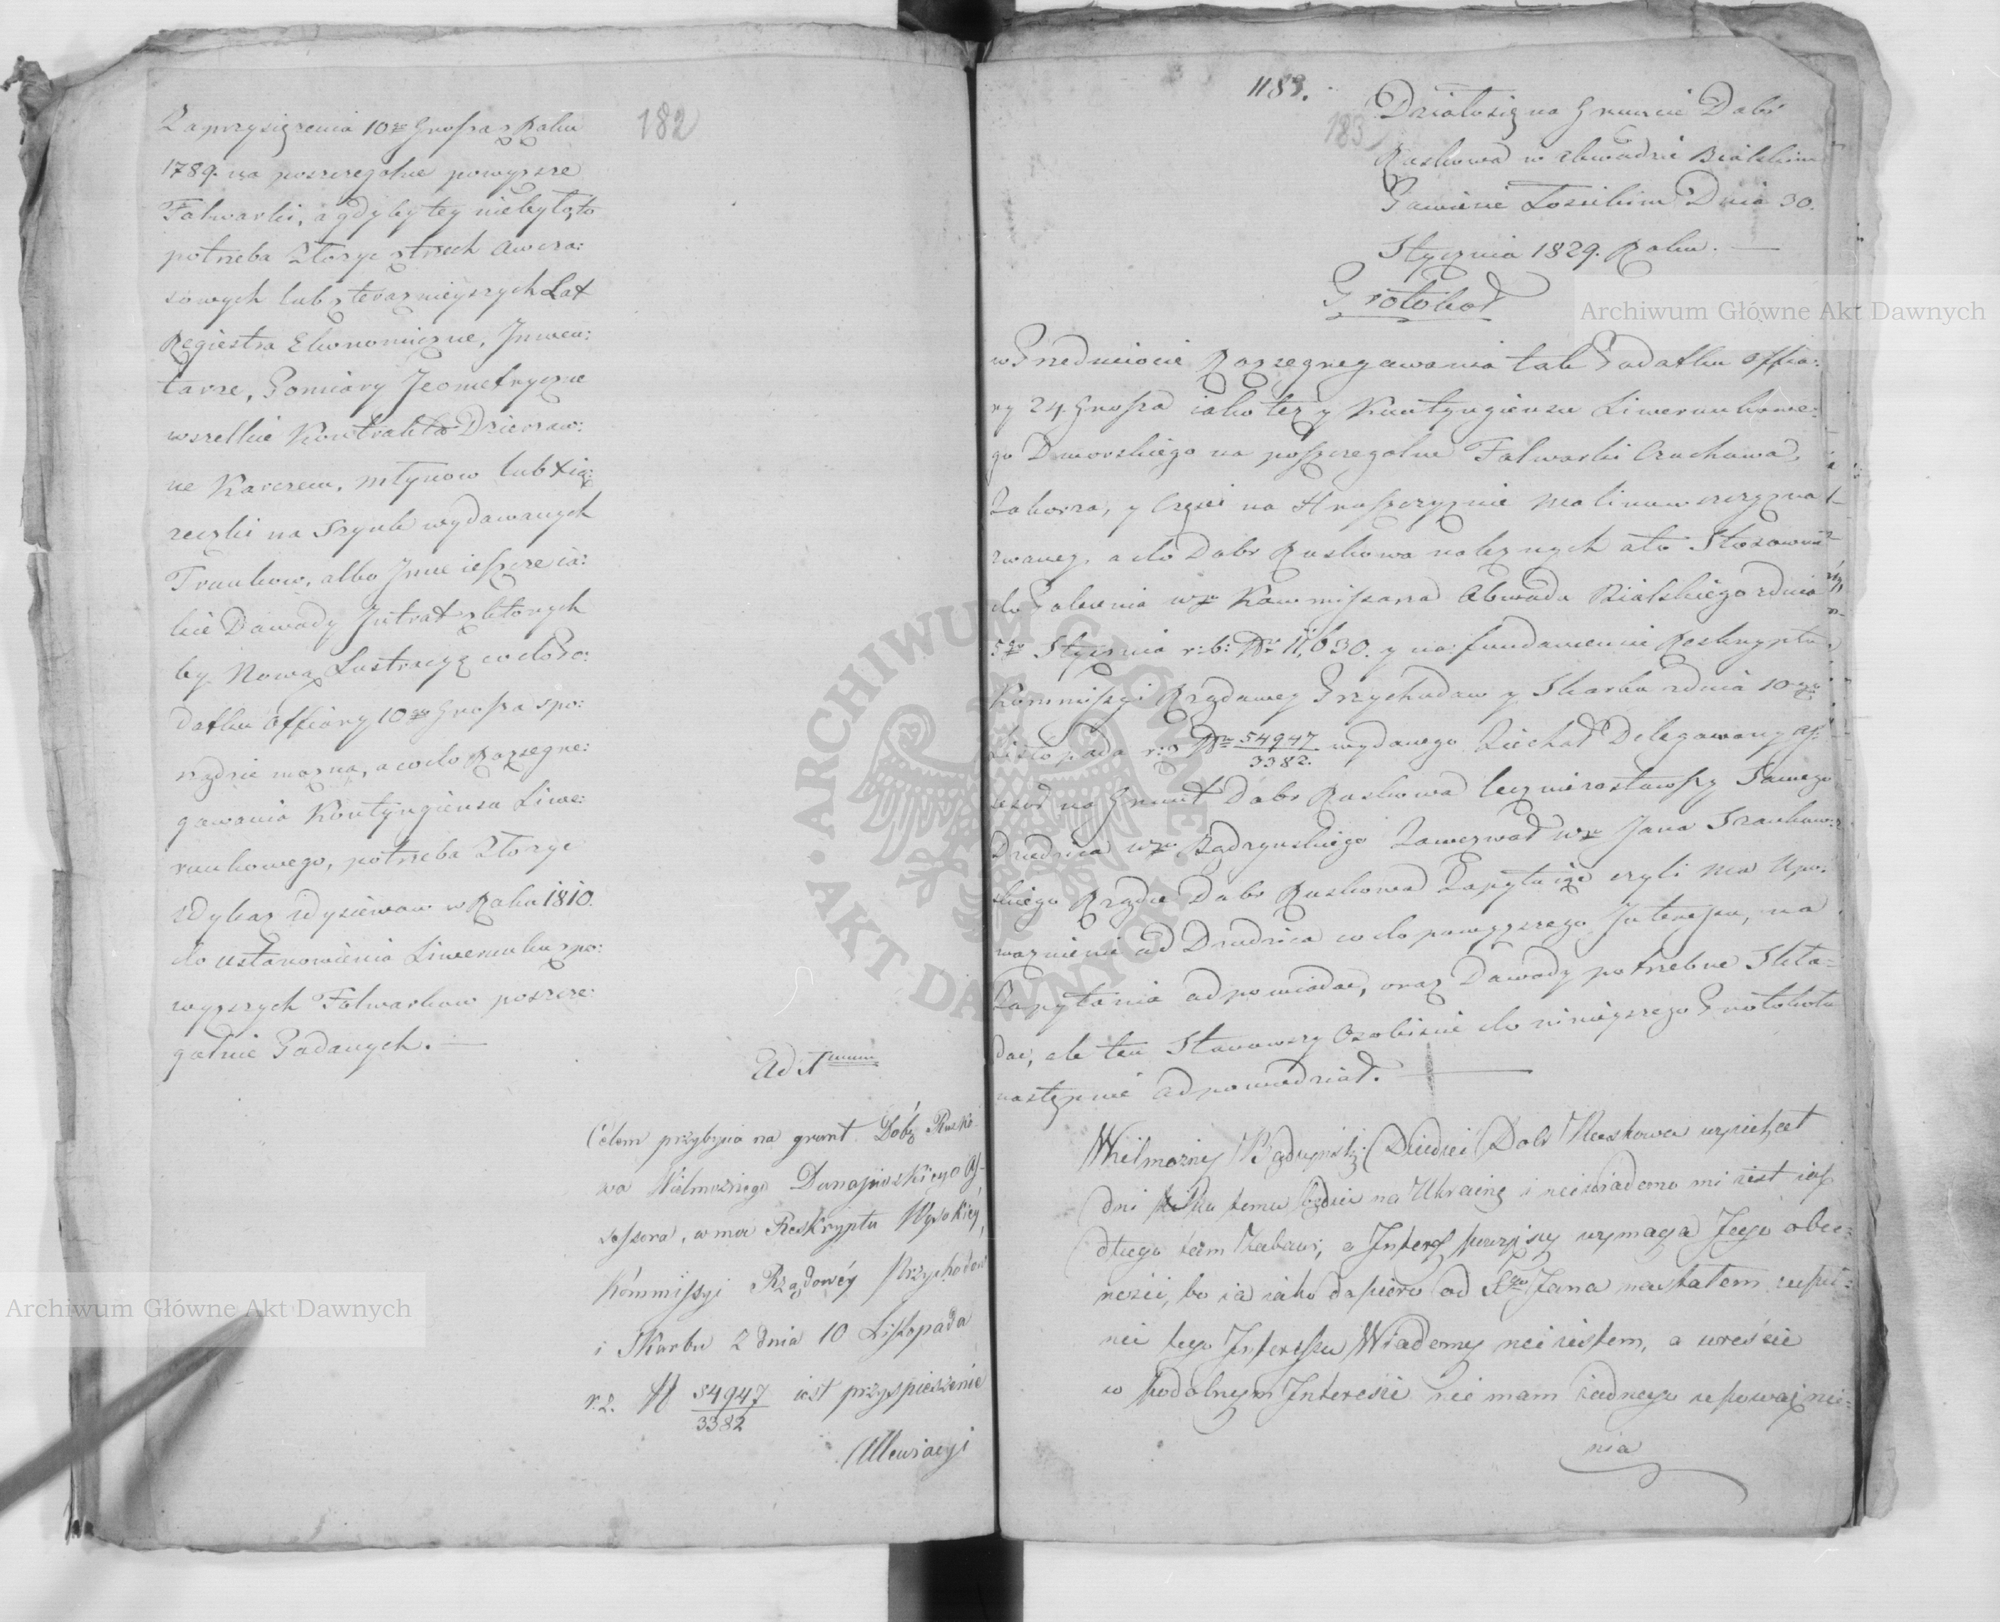 182
Zaprzysiężenia 10go Grosza z Roku
1789. na poszczegolne powyższe
Folwarki, a gdyby tey niebyło, to
potrzeba złożyc z trzech Awcza:
sowych lub z teraznieyszych Lat
Regiestra Ekonomiczne, Inwen:
tarze, Pomiary Jeometryczne
wszelkie Kontrakta Dzierzaw:
ne Karczem, młynow lub
na Szynk wydawanych
Trunkow, albo Inne ieszcze ia:
kie Dowody Intrat z ktorych
by Nową Lustracyą co do Po:
datku Offiary 10go Grosza spo:
rządzić można, a co do Rozsegre:
gowania Kontyngiensu Liwe:
runkowego, potrzeba złożyc
Wykaz Wysiewow w Roku 1810.
do ustanowienia Liwerunku z po:
wyzszych Folwarkow poszcze:
golnie Podanych. —
Ad 1mum
Celem przybycia na grunt Dóbr Rusko
wa Wielmożnego Dunajewskiego As
sessora, w moc Reskryptu Wysokiéy
Kommissyi Rządowéy Przychodów
i Skarbu z dnia 10 Listopada
r. z. N 54947/3382 iest przyspieszenie
Ulewiacyi
1183.
183
Działo się na Gruncie Dobr
Ruskowa w obwodzie Bialskim
Powiecie Łosickim Dnia 30.
Stycznia 1829. Roku. —
Protokoł
w Przedmiocie Rozsegregowania tak Podatku Offia:
ry 24 Grosza iako tez y Kontyngiensu Liwerunkowe:
go Dworskiego na poszczegolne Folwarki Czuchowa,
Zaborza, y Części na Hruszczyznie Malinowszczyzna
zwaney, a do Dobr Ruskowa należnych a to Stosownie
do Polecenia Wgo Kommissarza Obwodu Bialskiego z dnia
5go Stycznia r: b: Nr 11,630. y na fundamencie Reskryptu
Kommissyi Rządowey Przychodow y Skarbu z dnia 10go
Listopada r: z Nr 54947/3382. wydanego Ziechał Delegowany As:
sesor na Grunt Dobr Ruskowa lecz niezostawszy Samego
Dziedzica Wgo Bądzynskiego Zawezwał Wgo Jana Szankow:
skiego Rządcę Dobr Ruskowa Zapytuiąc czyli ma Upo:
ważnienie od Dziedzica co do powyzszego Interessu, na
Zapytania odpowiadac, oraz Dowody potrzebne Skła:
dac, ale ten Stanowszy Osobiscie do ninieyszego Protokołu
następnie odpowiedział. —
Wielmożny Bądzyński Dziedzic Dobr Ruskowa wyiechał
dni kilka temu będzie na Ukrainę i niewiadomo mi iest iak
długo tam Zabawi, a Interes powyższy wymaga Jego obec:
ności, bo ia iako dopiero od Sgo Jana nastałem zupeł:
nie tego Interessu Wiadomy nie iestem, a wreście
w podobnym Interesie nie mam żadnego upoważnie:
nia
Archiwum Główne Akt Dawnych
Archiwum Główne Akt Dawnych
ARCHIWUM GŁÓWNE AKT DAWNYCH